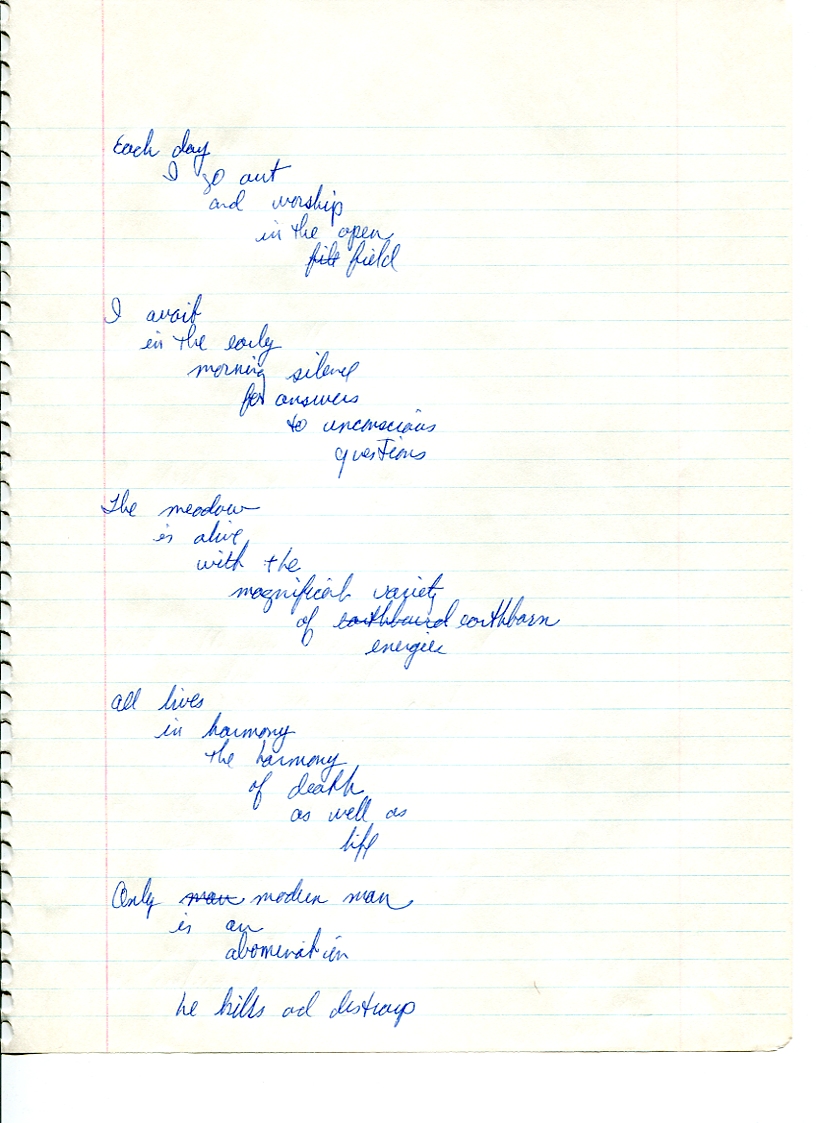 Each day
I go out
and worship
in the open
file field
I await
in the early
morning silence
for answers
to unconscious
questions
The meadow
is alive
with the
magnificent variety
of earthbound earthborn
energies
All lives
in harmony
the harmony
of death
as well as
life
Only man modern man
is an
abomination
he kills and destroys